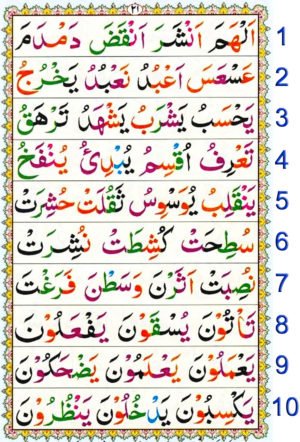 ٢١
1 اَلْهَمَ اَنْشَرَ اَنْقَضَ دَمْدَمَ
2 عَسْعَسَ اَعْبُدُ نَعْبُدُ يَخْرُجُ
3 يَحْسَبُ يَشْرَبُ يَشْهَدُ تَرْهَقُ
4 تَعْرِفُ اُقْسِمُ يُبْدِئُ يُنْفَخُ
5 يَنْقَلِبُ يُوَسْوِسُ ثَقُلَتْ حُشِرَتْ
6 سُطِحَتْ كُشِطَتْ نُشِرَتْ
7 نُصِبَتْ اَثَرْنَ وَسَطْنَ فَرَغْتَ
8 تَأْتُوْنَ يُسْقَوْنَ يَفْعَلُوْنَ
9 يَعْمَلُوْنَ يَعْلَمُوْنَ يَضْحَكُوْنَ
10 يَكْسِبُوْنَ يَدْخُلُوْنَ يَنْظُرُوْنَ